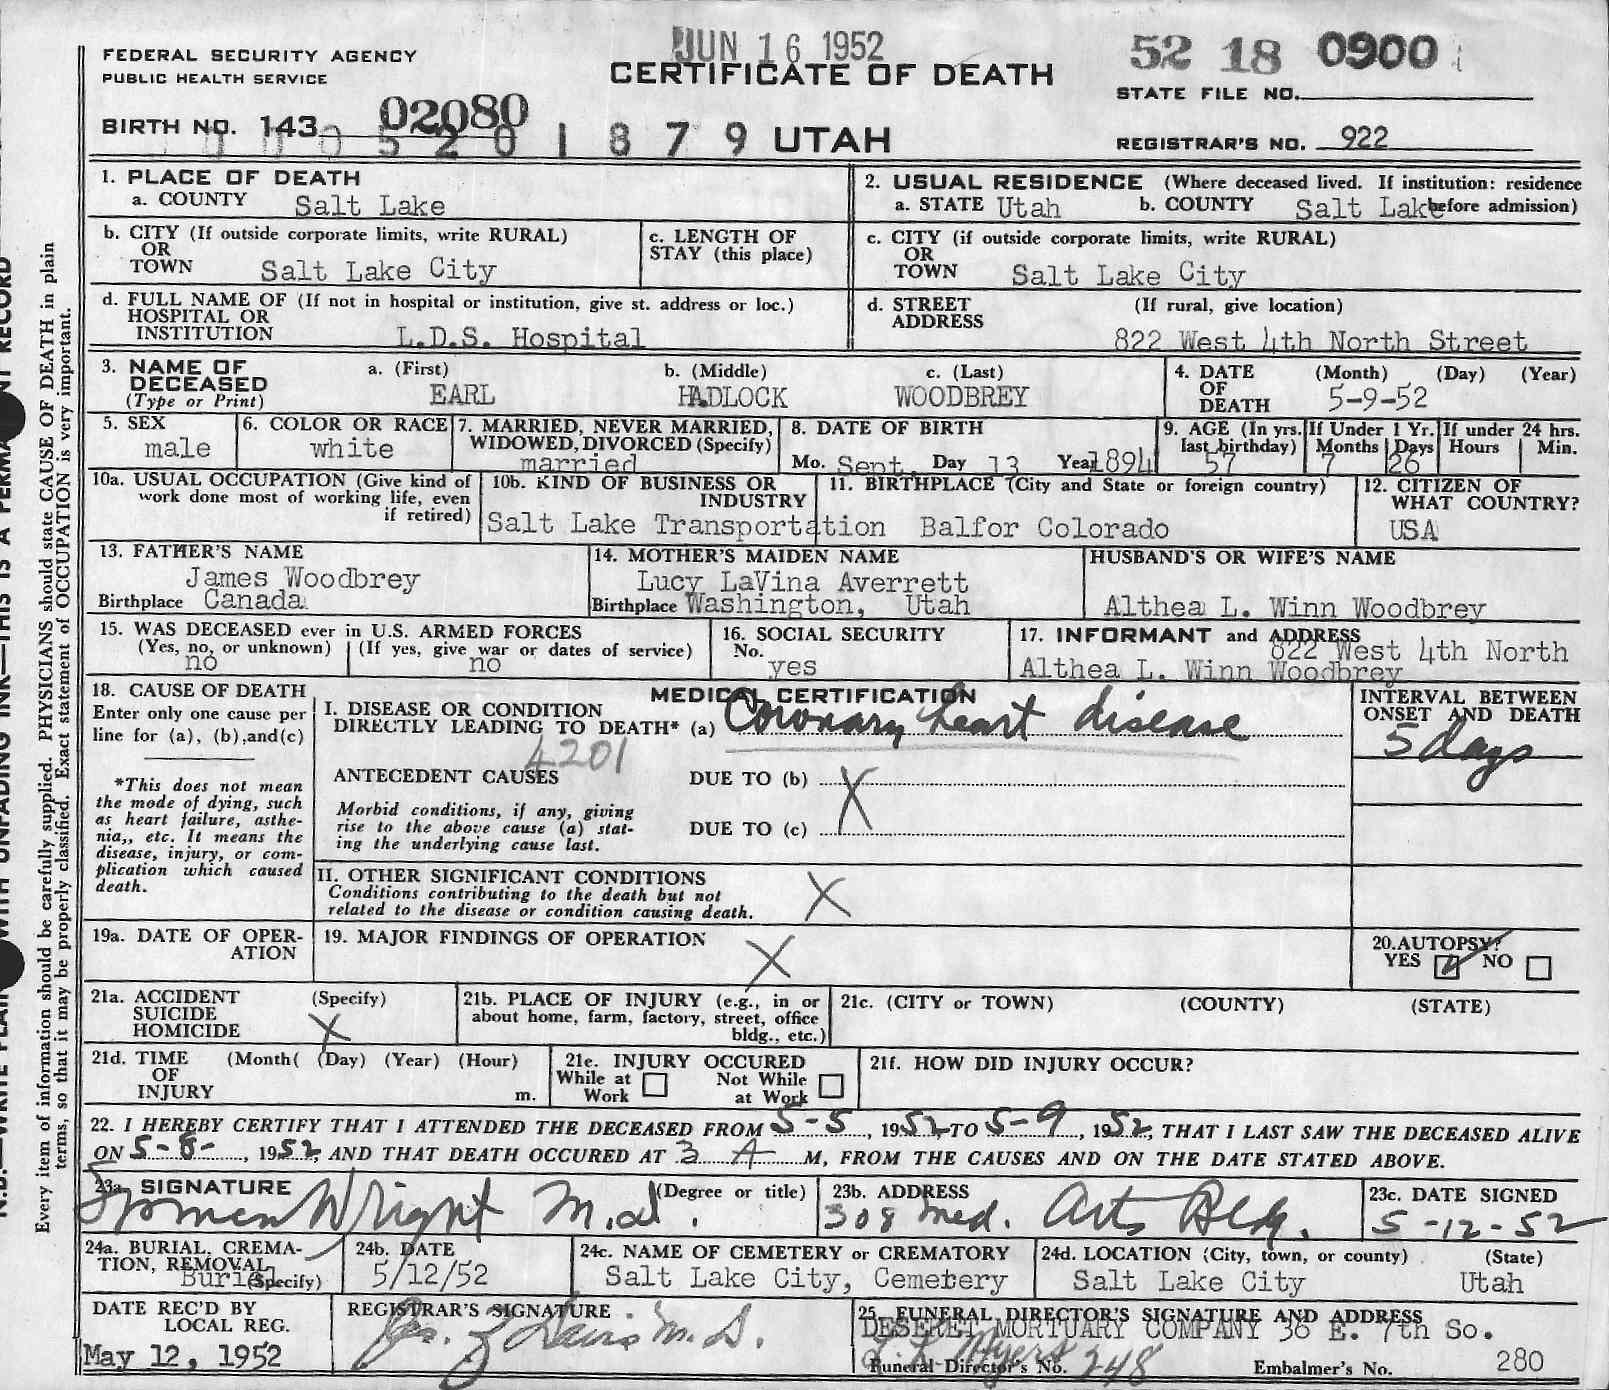 JUN 16 1952
52 18 0900
FEDERAL SECURITY AGENCY
PUBLIC HEALTH SERVICE
CERTIFICATE OF DEATH
STATE FILE NO.
BIRTH NO. 143 02080
520 1879 UTAH
REGISTRAR'S NO. 922
1. PLACE OF DEATH
a. COUNTY Salt Lake
2. USUAL RESIDENCE (Where deceased lived. If institution: residence before admission)
a. STATE Utah b. COUNTY Salt Lake
b. CITY (If outside corporate limits, write RURAL)
OR
TOWN Salt Lake City
c. LENGTH OF
STAY (this place)
c. CITY (if outside corporate limits, write RURAL)
OR
TOWN Salt Lake City
d. FULL NAME OF (If not in hospital or institution, give st. address or loc.)
HOSPITAL OR
INSTITUTION L.D.S. Hospital
d. STREET (If rural, give location)
ADDRESS
822 West 4th North Street
3. NAME OF
DECEASED
(Type or Print)
a. (First) b. (Middle) c. (Last)
EARL HADLOCK WOODBREY
4. DATE (Month) (Day) (Year)
OF
DEATH 5-9-52
5. SEX
male
6. COLOR OR RACE
white
7. MARRIED, NEVER MARRIED,
WIDOWED, DIVORCED (Specify)
married
8. DATE OF BIRTH
Mo. Sept. Day 13 Year 1894
9. AGE (In yrs. last birthday)
57
If Under 1 Yr.
Months Days
7 26
If under 24 hrs.
Hours Min.
10a. USUAL OCCUPATION (Give kind of
work done most of working life, even
if retired)
10b. KIND OF BUSINESS OR
INDUSTRY
Salt Lake Transportation
11. BIRTHPLACE (City and State or foreign country)
Balfor Colorado
12. CITIZEN OF
WHAT COUNTRY?
USA
13. FATHER'S NAME
James Woodbrey
Birthplace Canada
14. MOTHER'S MAIDEN NAME
Lucy LaVina Averrett
Birthplace Washington, Utah
HUSBAND'S OR WIFE'S NAME
Althea L. Winn Woodbrey
15. WAS DECEASED ever in U.S. ARMED FORCES
(Yes, no, or unknown) (If yes, give war or dates of service)
no no
16. SOCIAL SECURITY
No.
yes
17. INFORMANT and ADDRESS
822 West 4th North
Althea L. Winn Woodbrey
18. CAUSE OF DEATH
Enter only one cause per
line for (a), (b), and (c)
*This does not mean
the mode of dying, such
as heart failure, asthe-
nia,, etc. It means the
disease, injury, or com-
plication which caused
death.
MEDICAL CERTIFICATION
I. DISEASE OR CONDITION
DIRECTLY LEADING TO DEATH* (a) Coronary heart disease
4201
INTERVAL BETWEEN
ONSET AND DEATH
5 days
ANTECEDENT CAUSES
DUE TO (b) X
Morbid conditions, if any, giving
rise to the above cause (a) stat-
ing the underlying cause last.
DUE TO (c)
II. OTHER SIGNIFICANT CONDITIONS
Conditions contributing to the death but not
related to the disease or condition causing death.
X
19a. DATE OF OPER-
ATION
19. MAJOR FINDINGS OF OPERATION
X
20. AUTOPSY?
YES NO
21a. ACCIDENT (Specify)
SUICIDE
HOMICIDE X
21b. PLACE OF INJURY (e.g., in or
about home, farm, factory, street, office
bldg., etc.)
21c. (CITY or TOWN) (COUNTY) (STATE)
21d. TIME (Month( (Day) (Year) (Hour)
OF
INJURY m.
21e. INJURY OCCURED
While at Work Not While at Work
21f. HOW DID INJURY OCCUR?
22. I HEREBY CERTIFY THAT I ATTENDED THE DECEASED FROM 5-5, 1952, TO 5-9, 1952, THAT I LAST SAW THE DECEASED ALIVE
ON 5-8-, 1952, AND THAT DEATH OCCURED AT 3 A M, FROM THE CAUSES AND ON THE DATE STATED ABOVE.
23a. SIGNATURE (Degree or title)
Wright M.d.
23b. ADDRESS
308 Med. Arts Bldg.
23c. DATE SIGNED
5-12-52
24a. BURIAL, CREMA-
TION, REMOVAL
(Specify) Burial
24b. DATE
5/12/52
24c. NAME OF CEMETERY or CREMATORY
Salt Lake City, Cemetery
24d. LOCATION (City, town, or county) (State)
Salt Lake City Utah
DATE REC'D BY
LOCAL REG.
May 12, 1952
REGISTRAR'S SIGNATURE
Davis M.D.
25. FUNERAL DIRECTOR'S SIGNATURE AND ADDRESS
DESERET MORTUARY COMPANY 36 E. 7th So.
Myers
Funeral Director's No. 248 Embalmer's No. 280
Every item of information should be carefully supplied. PHYSICIANS should state CAUSE OF DEATH in plain
terms, so that it may be properly classified. Exact statement of OCCUPATION is very important.